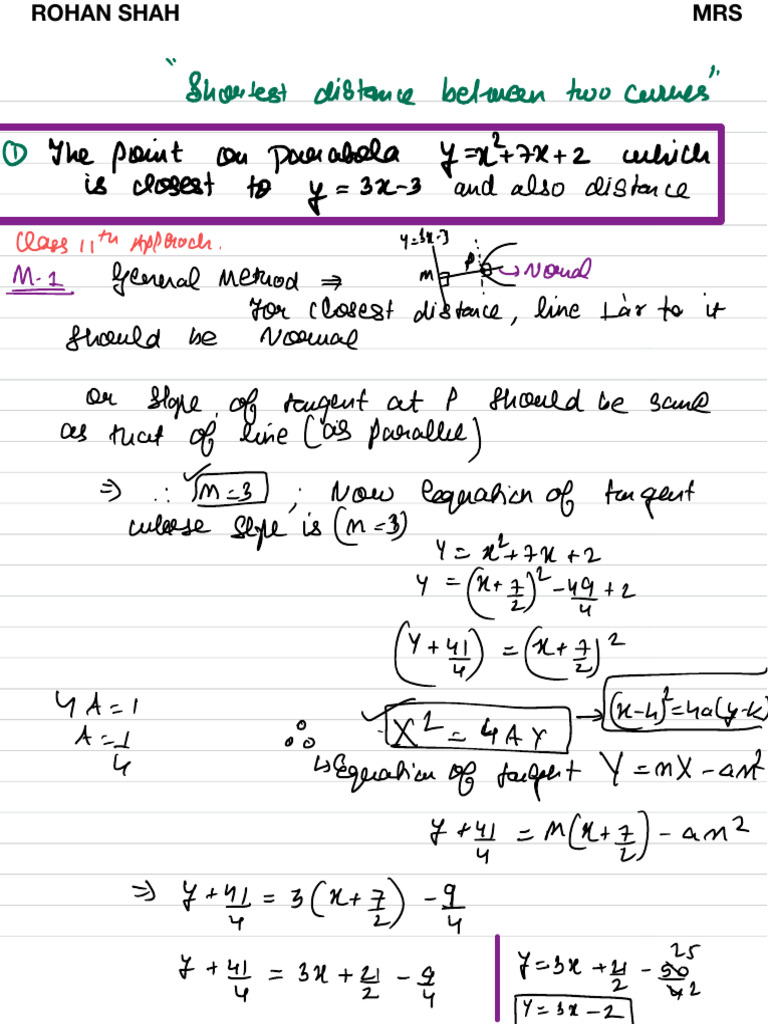 ROHAN SHAH MRS
"Shortest distance between two curves"
① The point on parabola y=x²+7x+2 which
is closest to y = 3x-3 and also distance
Class 11th Approach.
y=3x-3
M P → Normal
M-1 General Method ⇒
For closest distance, line ⊥ar to it
should be Normal
or slope of tangent at P should be same
as that of line (as parallel)
⇒ ∴ ✓ m=3 ; Now equation of tangent
whose slope is (m=3)
y = x²+7x+2
y = (x+7/2)² - 49/4 + 2
(y+41/4) = (x+7/2)²
4A=1
A=1/4
∴ ✓ X² = 4AY → (x-h)²=4a(y-k)
↳ Equation of tangent Y = mX - am²
y + 41/4 = m(x+7/2) - am²
⇒ y + 41/4 = 3(x+7/2) - 9/4
y + 41/4 = 3x + 21/2 - 9/4
y = 3x + 21/2 - 50/42 25
y = 3x - 2